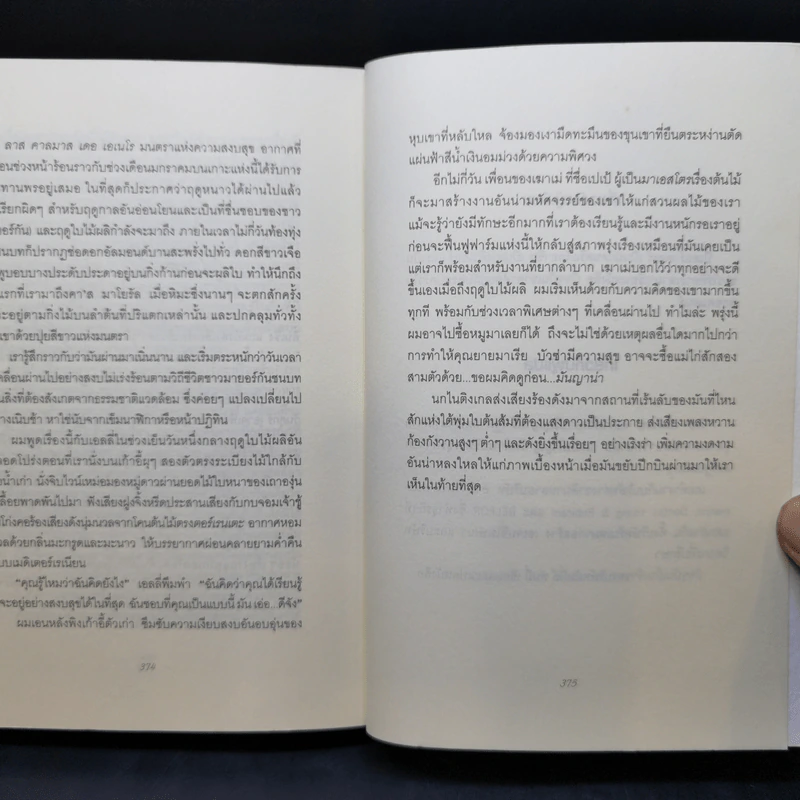 ลาส คาลมาส เดอ เอเนโร มนตราแห่งความสงบสุข อากาศที่
อนช่วงหน้าร้อนราวกับช่วงเดือนมกราคมบนเกาะแห่งนี้ได้รับการ
ทานพรอยู่เสมอ ในที่สุดก็ประกาศว่าฤดูหนาวได้ผ่านไปแล้ว
รียกผิดๆ สำหรับฤดูกาลอันอ่อนโยนและเป็นที่ชื่นชอบของชาว
อร์กัน) และฤดูใบไม้ผลิกำลังจะมาถึง ภายในเวลาไม่กี่วันท้องทุ่ง
นบทก็ปรากฏช่อดอกอัลมอนด์บานสะพรั่งไปทั่ว ดอกสีขาวเจือ
พูบอบบางประดับประดาอยู่บนกิ่งก้านก่อนจะผลิใบ ทำให้นึกถึง
แรกที่เรามาถึงคา'ส มาโยรัล เมื่อหิมะซึ่งนานๆ จะตกสักครั้ง
ะอยู่ตามกิ่งไม้บนลำต้นที่ปริแตกเหล่านั้น และปกคลุมทั่วทั้ง
เขาด้วยปุยสีขาวแห่งมนตรา
เรารู้สึกราวกับว่ามันผ่านมาเนิ่นนาน และเริ่มตระหนักว่าวันเวลา
คลื่อนผ่านไปอย่างสงบไม่เร่งร้อนตามวิถีชีวิตชาวมายอร์กันชนบท
นสิ่งที่ต้องสังเกตจากธรรมชาติแวดล้อม ซึ่งค่อยๆ แปลงเปลี่ยนไป
างเนิบช้า หาใช่นับจากเข็มนาฬิกาหรือหน้าปฏิทิน
ผมพูดเรื่องนี้กับเอลลี่ในช่วงเย็นวันหนึ่งกลางฤดูใบไม้ผลิอัน
ลอดโปร่งตอนที่เรานั่งบนเก้าอี้ผุๆ สองตัวตรงระเบียงไม้ใกล้กับ
น้ำเก่า นั่งจิบไวน์เหม่อมองหมู่ดาวผ่านยอดไม้ใบหนาของเถาองุ่น
ลื้อยพาดพันไปมา ฟังเสียงฝูงจิ้งหรีดประสานเสียงกับกบจอมเจ้าชู้
โก่งคอร้องเสียงดังนุ่มนวลจากโคนต้นไม้ตรงตอร์เรนเตะ อากาศหอม
วลด้วยกลิ่นมะกรูดและมะนาว ให้บรรยากาศผ่อนคลายยามค่ำคืน
บบเมดิเตอร์เรเนียน
“คุณรู้ไหมว่าฉันคิดยังไง” เอลลี่พึมพำ “ฉันคิดว่าคุณได้เรียนรู้
จะอยู่อย่างสงบสุขได้ในที่สุด ฉันชอบที่คุณเป็นแบบนี้ มัน เอ่อ...ดีจัง”
ผมเอนหลังพิงเก้าอี้ตัวเก่า ซึมซับความเงียบสงบอันอบอุ่นของ
374
หุบเขาที่หลับใหล จ้องมองเงามืดทะมึนของขุนเขาที่ยืนตระหง่านตัด
แผ่นฟ้าสีน้ำเงินอมม่วงด้วยความพิศวง
อีกไม่กี่วัน เพื่อนของเฆาเม่ ที่ชื่อเปเป้ ผู้เป็นมาเอสโตรเรื่องต้นไม้
ก็จะมาสร้างงานอันน่ามหัศจรรย์ของเขาให้แก่สวนผลไม้ของเรา
แม้จะรู้ว่ายังมีทักษะอีกมากที่เราต้องเรียนรู้และมีงานหนักรอเราอยู่
ก่อนจะฟื้นฟูฟาร์มแห่งนี้ให้กลับสู่สภาพรุ่งเรืองเหมือนที่มันเคยเป็น
แต่เราก็พร้อมสำหรับงานที่ยากลำบาก เฆาเม่บอกไว้ว่าทุกอย่างจะดี
ขึ้นเองเมื่อถึงฤดูใบไม้ผลิ ผมเริ่มเห็นด้วยกับความคิดของเขามากขึ้น
ทุกที พร้อมกับช่วงเวลาพิเศษต่างๆ ที่เคลื่อนผ่านไป ทำไมล่ะ พรุ่งนี้
ผมอาจไปซื้อหมูมาเลยก็ได้ ถึงจะไม่ใช่ด้วยเหตุผลอื่นใดมากไปกว่า
การทำให้คุณยายมาเรีย บัวซ่ามีความสุข อาจจะซื้อแม่ไก่สักสอง
สามตัวด้วย...ขอผมคิดดูก่อน...มันญาน่า
นกไนติงเกลส่งเสียงร้องดังมาจากสถานที่เร้นลับของมันที่ไหน
สักแห่งใต้พุ่มใบต้นส้มที่ต้องแสงดาวเป็นประกาย ส่งเสียงเพลงหวาน
ก้องกังวานสูงๆ ต่ำๆ และดังยิ่งขึ้นเรื่อยๆ อย่างเริงร่า เพิ่มความงดงาม
อันน่าหลงใหลให้แก่ภาพเบื้องหน้าเมื่อมันขยับปีกบินผ่านมาให้เรา
เห็นในท้ายที่สุด
375